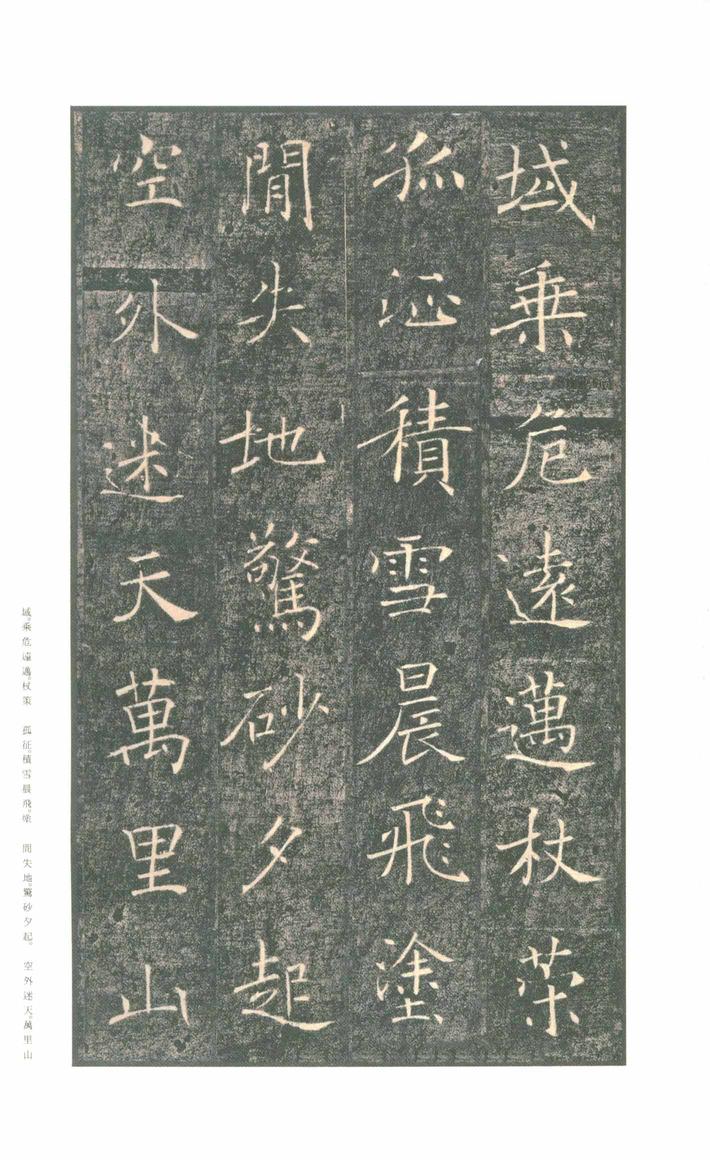 域乗危遠邁杖策
孤征積雪晨飛塗
閒失地驚砂夕起
空外迷天萬里山
域。乗危遠邁。杖策　孤征。積雪晨飛。塗　間失地。驚砂夕起。　空外迷天。萬里山